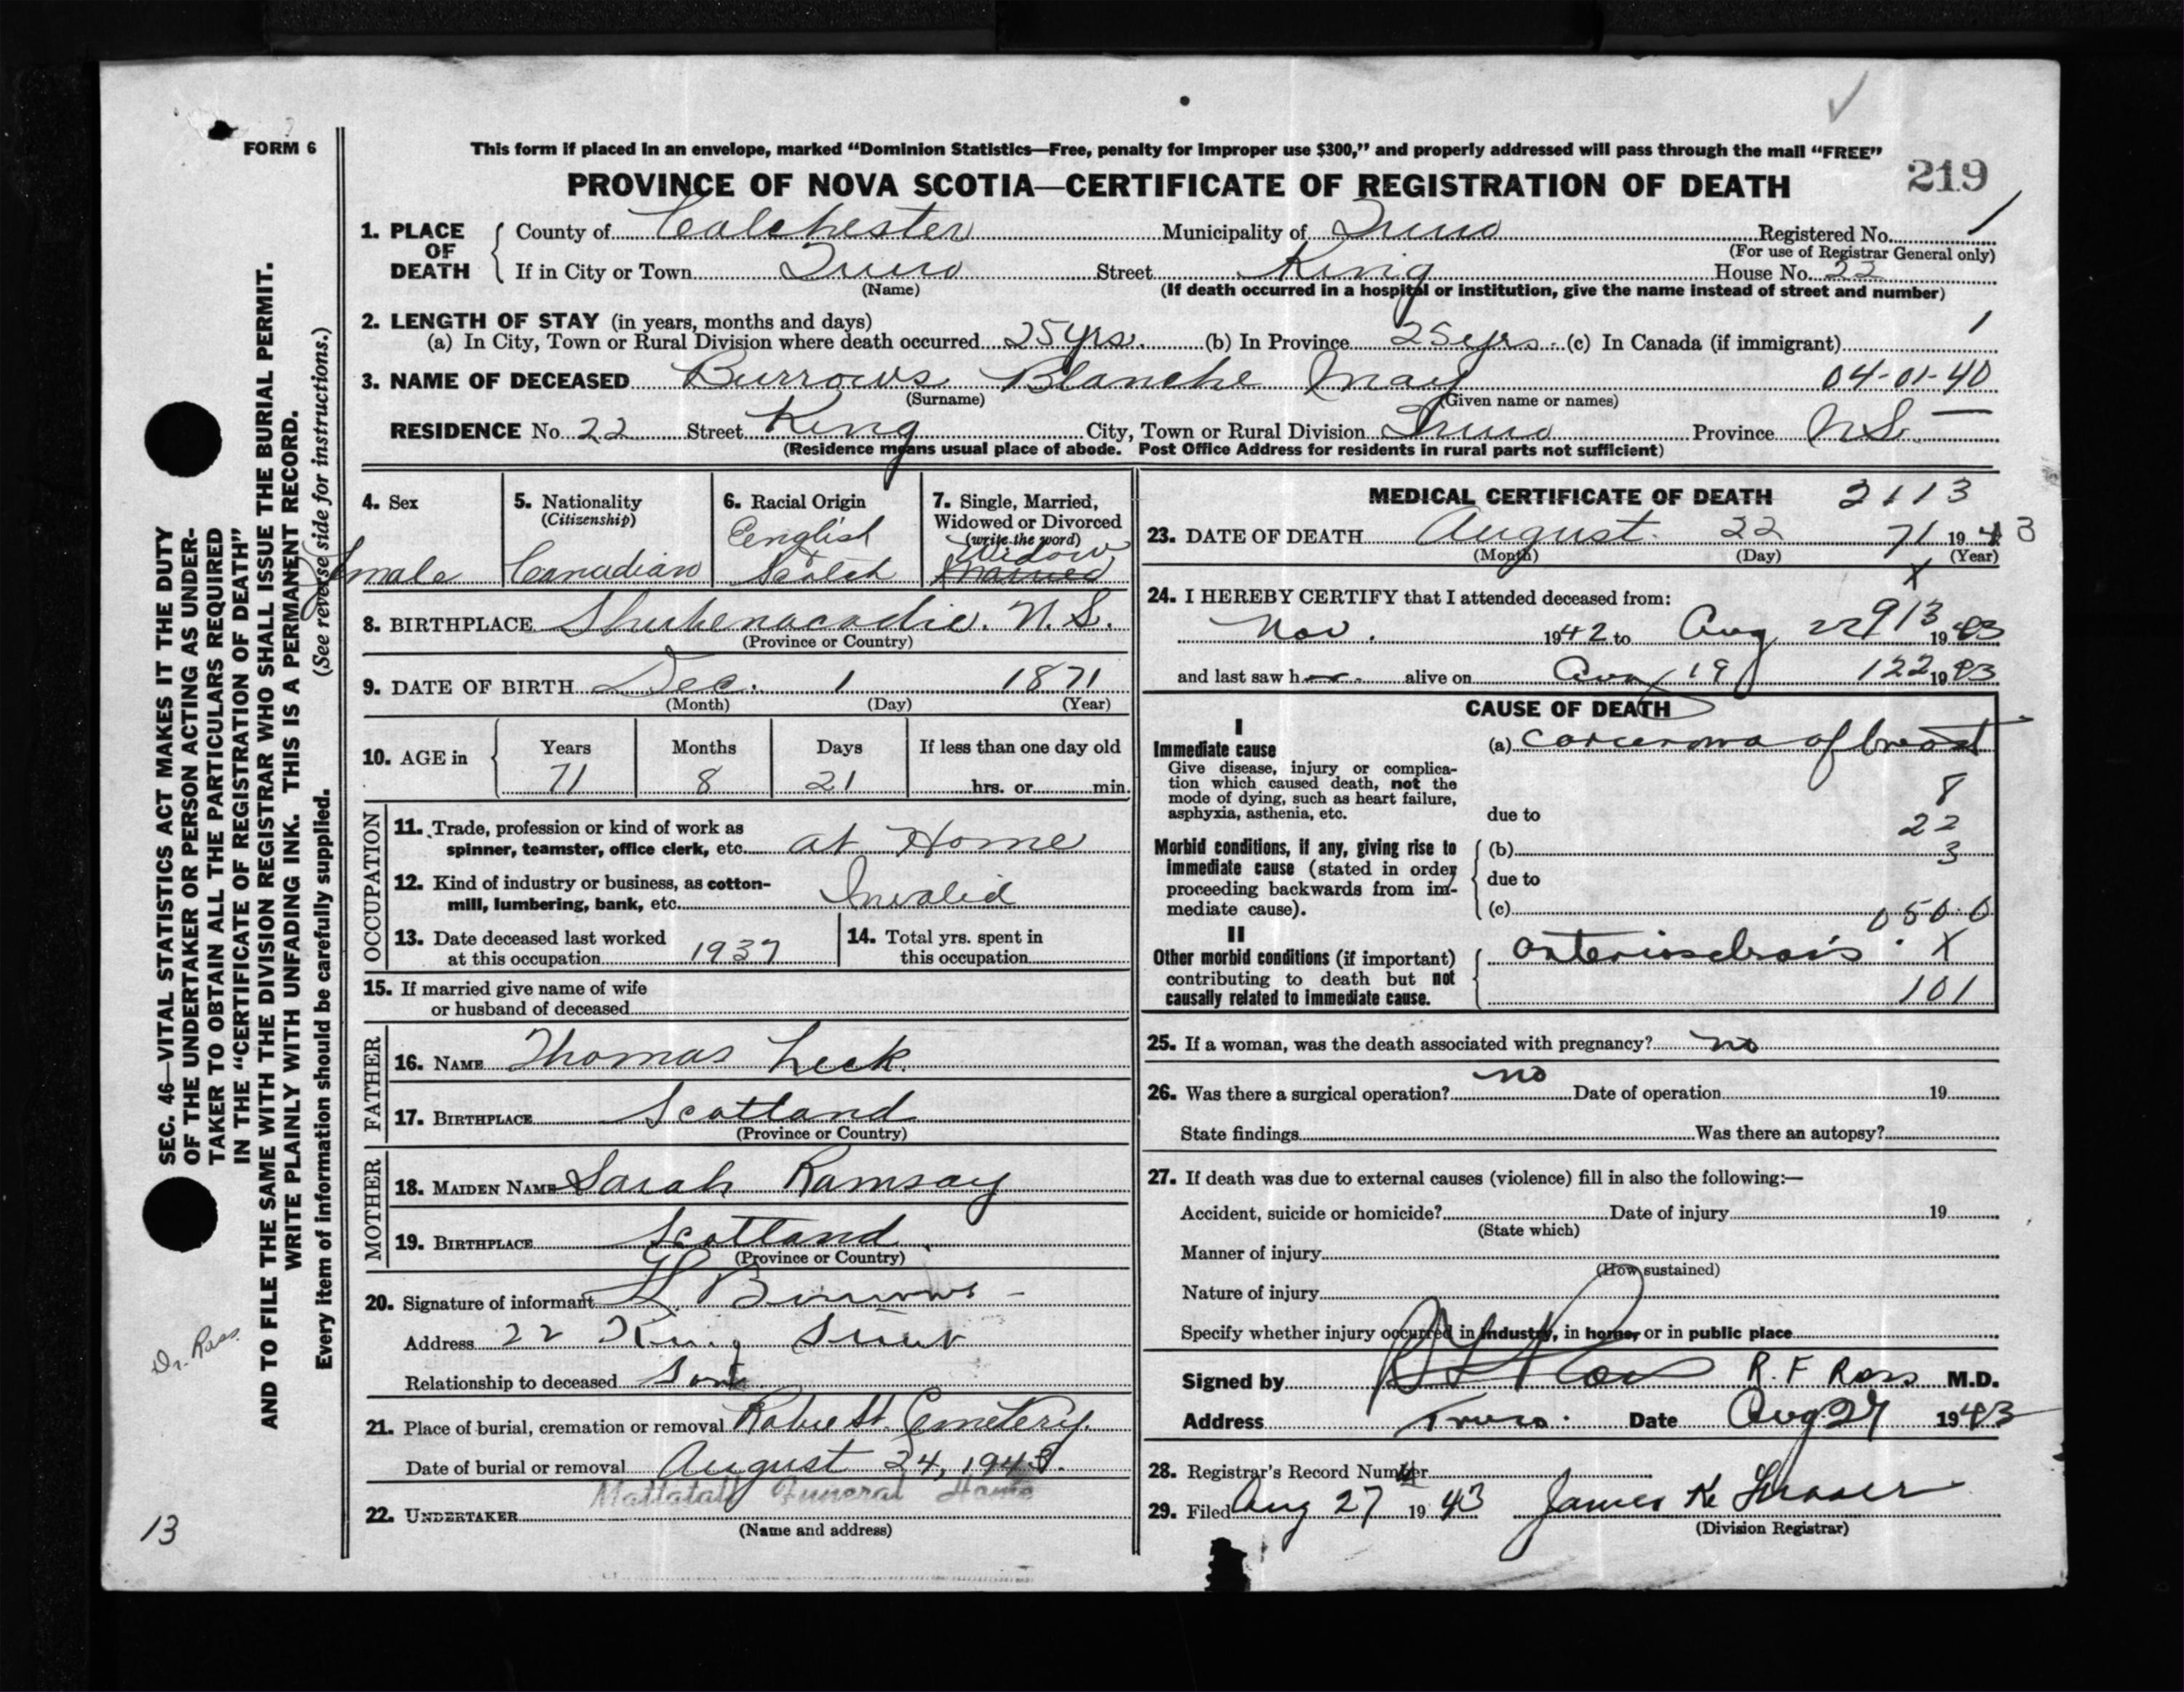 FORM 6
This form if placed in an envelope, marked “Dominion Statistics—Free, penalty for improper use $300,” and properly addressed will pass through the mail “FREE”
PROVINCE OF NOVA SCOTIA—CERTIFICATE OF REGISTRATION OF DEATH
219
1. PLACE OF DEATH
County of Colchester Municipality of Truro Registered No. 1
(For use of Registrar General only)
If in City or Town Truro Street King House No. 22
(Name) (If death occurred in a hospital or institution, give the name instead of street and number)
2. LENGTH OF STAY (in years, months and days)
(a) In City, Town or Rural Division where death occurred 25 yrs. (b) In Province 25 yrs. (c) In Canada (if immigrant) 1
3. NAME OF DECEASED Burrows Blanche May 04-01-40
(Surname) (Given name or names)
RESIDENCE No. 22 Street King City, Town or Rural Division Truro Province N.S. —
(Residence means usual place of abode. Post Office Address for residents in rural parts not sufficient)
4. Sex
Female
5. Nationality
(Citizenship)
Canadian
6. Racial Origin
English
Scotch
7. Single, Married,
Widowed or Divorced
(write the word)
Widow
Married
8. BIRTHPLACE Shubenacadie. N.S.
(Province or Country)
9. DATE OF BIRTH Dec. 1 1871
(Month) (Day) (Year)
10. AGE in
Years Months Days If less than one day old
71 8 21 hrs. or min.
OCCUPATION
11. Trade, profession or kind of work as
spinner, teamster, office clerk, etc. at Home
12. Kind of industry or business, as cotton-
mill, lumbering, bank, etc. Invalid
13. Date deceased last worked
at this occupation 1937
14. Total yrs. spent in
this occupation
15. If married give name of wife
or husband of deceased
FATHER
16. NAME Thomas Leck.
17. BIRTHPLACE Scotland
(Province or Country)
MOTHER
18. MAIDEN NAME Sarah Ramsay
19. BIRTHPLACE Scotland
(Province or Country)
20. Signature of informant Burrows
Address 22 King Street
Relationship to deceased Son
21. Place of burial, cremation or removal Robie St. Cemetery.
Date of burial or removal August 24, 1943.
Mattatall Funeral Home
22. UNDERTAKER
(Name and address)
MEDICAL CERTIFICATE OF DEATH 2113
23. DATE OF DEATH August 22 71 1943
(Month) (Day) (Year)
X
24. I HEREBY CERTIFY that I attended deceased from:
Nov. 1942 to Aug 22 913 1943
and last saw her alive on Aug 19 122 1943
CAUSE OF DEATH
I
Immediate cause
Give disease, injury or complica-
tion which caused death, not the
mode of dying, such as heart failure,
asphyxia, asthenia, etc.
(a) carcinoma of breast
8
due to
22
Morbid conditions, if any, giving rise to
immediate cause (stated in order
proceeding backwards from im-
mediate cause).
(b) 3
due to
(c) 050.0
II
Other morbid conditions (if important)
contributing to death but not
causally related to immediate cause.
arteriosclerosis. X
101
25. If a woman, was the death associated with pregnancy? no
26. Was there a surgical operation? no Date of operation 19
State findings Was there an autopsy?
27. If death was due to external causes (violence) fill in also the following:—
Accident, suicide or homicide? Date of injury 19
(State which)
Manner of injury
(How sustained)
Nature of injury
Specify whether injury occurred in industry, in home, or in public place
Signed by R F Ross R. F Ross M.D.
Address Truro. Date Aug 27 1943
28. Registrar's Record Number
29. Filed Aug 27 1943 James K. Fraser
(Division Registrar)
SEC. 46—VITAL STATISTICS ACT MAKES IT THE DUTY
OF THE UNDERTAKER OR PERSON ACTING AS UNDER-
TAKER TO OBTAIN ALL THE PARTICULARS REQUIRED
IN THE “CERTIFICATE OF REGISTRATION OF DEATH”
AND TO FILE THE SAME WITH THE DIVISION REGISTRAR WHO SHALL ISSUE THE BURIAL PERMIT.
WRITE PLAINLY WITH UNFADING INK. THIS IS A PERMANENT RECORD.
Every item of information should be carefully supplied. (See reverse side for instructions.)
Dr. Ross
13